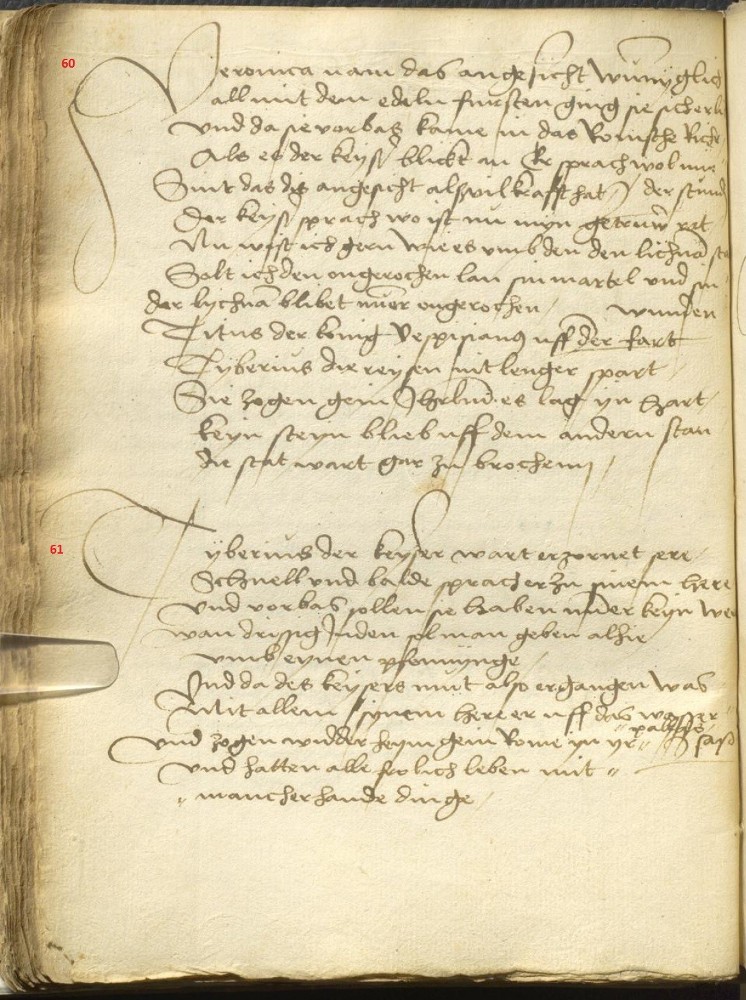 60
Veronica nam das angesicht wunnyglich
all mit dem edeln fursten ging sie sicherli
Vnd da sie vorbas kame in das Romsche Rich
Als es der keyser blickt an Er sprach wol mir
Sint das dis angesicht also vil krafft hat der stund
Der keyser sprach wo ist nu myn getruwer rat
Nu wist ich gern wie es vmb den den lichnam sta
Solt ich den ongerochen lan sin martel vnd sin
der lychnam blibet numer ongerochen wunden
Titus der konig Vespisianus uff der fart
Tyberius die reysen nit lenger spart
Sie zogen gein Jherusalem es lag yn hart
keyn steyn blieb uff dem andern stan
die stat wart gar zu brochenn
61
Tyberius der keyser wart erzornet sere
Schnell vnd balde sprach er zu sinem here
Vnd vorbas sollen sie haben numer keyn wer
wan drissig Juden sol man geben alhie
vmb eynen pfennynge
Vnd da des keysers mut also ergangen was
Mit allem synem here er uff das wasser
vnd zogen widder heym gein Rome yn yr pallas sas
Vnd hatten alle frolich leben mit
mancherhande dinge